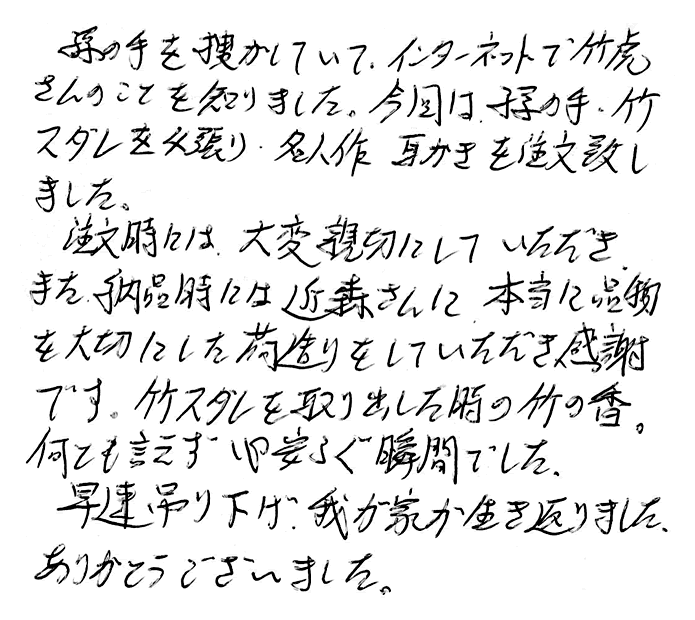 孫の手を捜していて、インターネットで竹虎
さんのことを知りました。今回は、孫の手・竹
スダレを 名人作 耳かきを注文致し
ました。
注文時には、大変親切にしていただき、
また、納品時には近森さんに、本当に品物
を大切にした荷造りをしていただき感謝
です。竹スダレを取り出した時の竹の香。
何とも言えず心安らぐ瞬間でした。
早速、吊り下げ、我が家が生き返りました、
ありがとうございました。